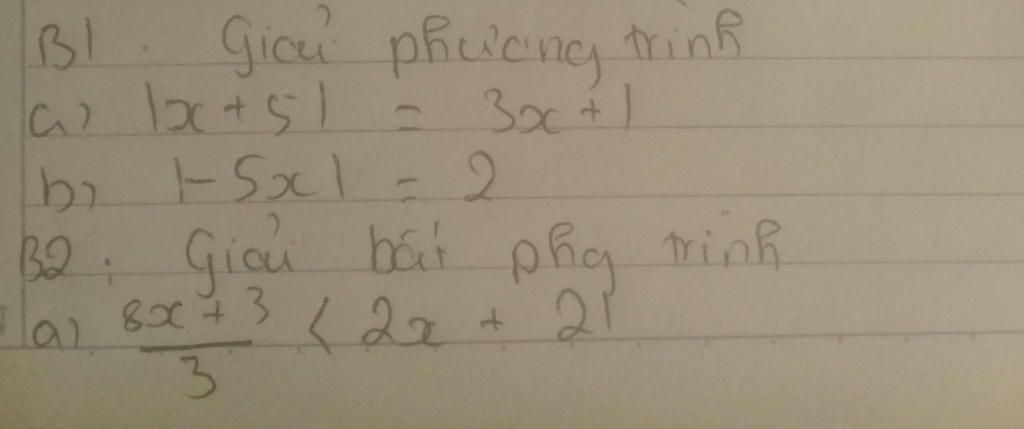 B1. Giải phương trình
a) |x + 5| = 3x + 1
b) |-5x| = 2
B2: Giải bất phg trình
a) \frac{8x + 3}{3} < 2x + 21